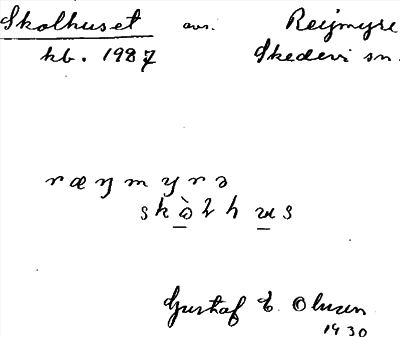 Skolhuset avs. Reijmyre
kb. 1987 Skedevi sn.
ræŋmyrə
skòlhʉs
Gustaf E. Olsson
1930